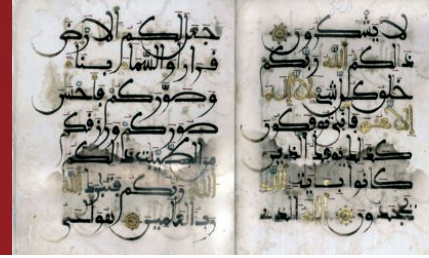 لا يشكرون
ذلكم الله ربكم
خلق كل شيء لا إله
إلا هو فأنى تؤفكون
كذلك يؤفك الذين
كانوا بايت الله
يجحدون الله الذي
جعل لكم الارض
قرارا والسماء بناء
وصوركم فاحسن
صوركم ورزقكم
من الطيبت ذلكم
الله ربكم فتبرك الله
رب العلمين هو الحي